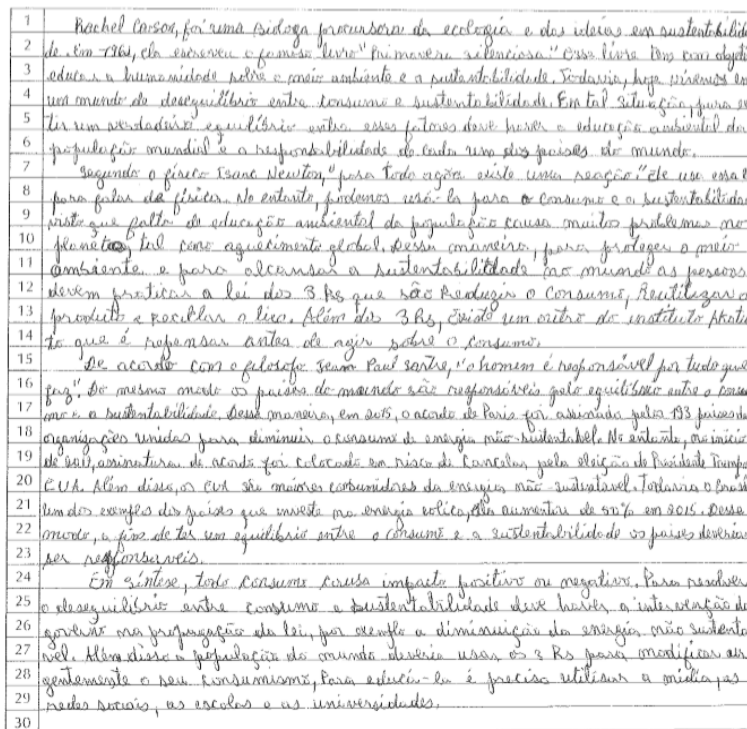 1 Rachel Carson, foi uma bióloga procursora da ecologia e das ideias em sustentabilida
2 de. Em 1962, ela escreveu o famoso livro "Primavera silenciosa" esse livro tem com objeti
3 educar a humanidade sobre o meio ambiente e a sustentabilidade. Todavia, hoje vivemos em
4 um mundo de desequilíbrio entre consumo e sustentabilidade. Em tal situação, para exis
5 tir um verdadeiro equilíbrio entre esses fatores deve haver a educação ambiental da
6 população mundial e a responsabilidade de cada um dos países do mundo.
7 Segundo o físico Isaac Newton, "para toda ação existe uma reação." Ele usa essa l
8 para falar da física. No entanto, podemos usá-la para o consumo e a sustentabilidad
9 visto que falta de educação ambiental da população causa muitos problemas no
10 planeta tal como aquecimento global. Dessa maneira, para proteger o meio
11 ambiente e para alcansar a sustentabilidade no mundo as pessoas
12 devem praticar a lei dos 3 Rs que são Reduzir o consumo, Reutilizar o
13 produto e Reciblar o lixo. Além dos 3 Rs, Existe um outro do instituto Akatu
14 to que é repensar antes de agir sobre o consumo.
15 De acordo com o filosofo Jean Paul sartre, "o homem é responsável por tudo que
16 faz". Do mesmo modo os países do mundo são responsíveis pelo equilíbrio entre o consu
17 mo e a sustentabilidade. Dessa maneira, em 2015, o acordo de Paris foi assinada pelos 193 países da
18 organizações unidas para diminuir o consumo de energia não-sustentabel. No entanto, no início
19 de assinatura de acordo foi colocado em risco de Cancelar pela eleição de Presidente Trump
20 EUA. Além disso, os EUA são maiores consumidores da energia não sustentavel. Todavia o Brasil
21 um dos exemplos dos países que investe na energia eolica, aumentou de 50% em 2015. Dessa
22 modo, a fim de ter um equilíbrio entre o consumo e a sustentabilidade os países deveria
23 ser responsáveis.
24 Em síntese, todo consumo causa impacto positivo ou negativo. Para resolver
25 o desequilíbrio entre consumo e sustentabilidade deve haver a intervenção do
26 governo na propagação da lei, por exemplo a diminuição da energia não sustenta
27 vel. Além disso a população do mundo deveria usar os 3 Rs para modificar ur
28 gentemente o seu consumismo, Para educá-la é preciso utilisar a mídia, as
29 redes sociais, as escolas e as universidades.
30